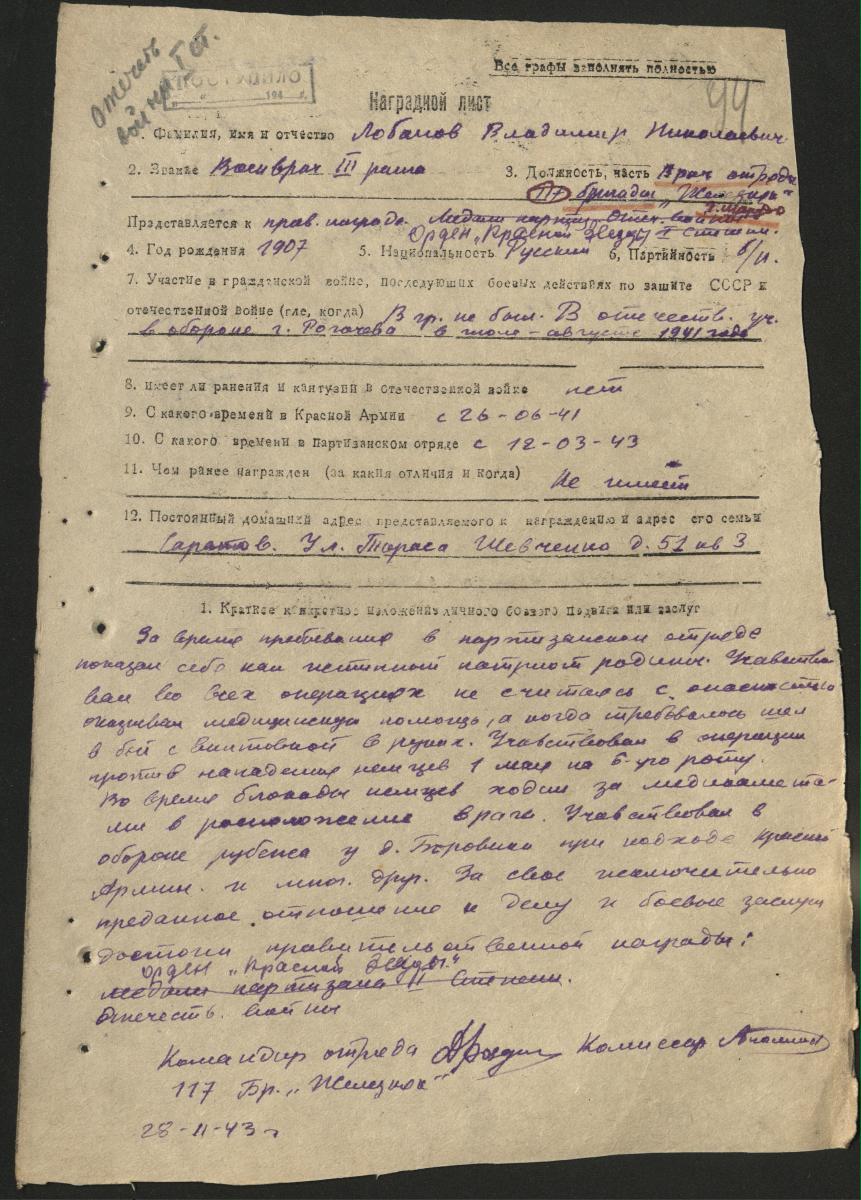 Отечеств
войны I ст.
ПОСТУПИЛО
194 г.
Все графы заполнять полностью
Наградной лист
1. Фамилия, имя и отчество Лобанов Владимир Николаевич
2. Званье Военврач III ранга 3. Должность, часть Врач отряда
117 бригады "Железняк"
Представляется к прав. награде Медали парти. Отеч. войны
Орден "Красной Звезды" I степени.
4. Год рождения 1907 5. Национальность Русский 6, Партийность б/п.
7. Участие в гражданской войне, последующих боевых действиях по защите СССР и
отечественной войне (где, когда) В гр. не был. В отечеств. уч.
в обороне г. Рогачева в июле-августе 1941 года
8. имеет ли ранения и кантузии в отечественной войне нет
9. С какого времени в Красной Армии с 26-06-41
10. С какого времени в партизанском отряде с 12-03-43
11. Чем ранее награжден (за какия отличия и когда) Не имеет
12. Постоянный домашний адрес представляемого к награждению и адрес его семьи
Саратов. Ул. Тараса Шевченко д. 51 кв 3
1. Краткое конкретное изложение личного боевого подвига или заслуг
За время пребывания в партизанском отряде
показал себя как истинный патриот родины. Учавство
вал во всех операциях не считаясь с опасностью
оказывал медицинскую помощь, а когда требовалось шел
в бой с винтовкой в руках. Учавствовал в операции
против нападения немцев 1 мая на 6-ую роту.
Во время блокады немцев ходил за медикамента-
ми в расположение врага. Учавствовал в
обороне рубежа у д. Боровики при подходе Красной
Армии. и мног. друг. За свое исключительно
преданное отношение к делу и боевые заслуги
достоин правительственной награды:
Орден "Красной Звезды."
медали партизана II степени.
Отечеств. войны
Командир отряда Комиссар
117 Бр. "Железняк"
28-11-43 г